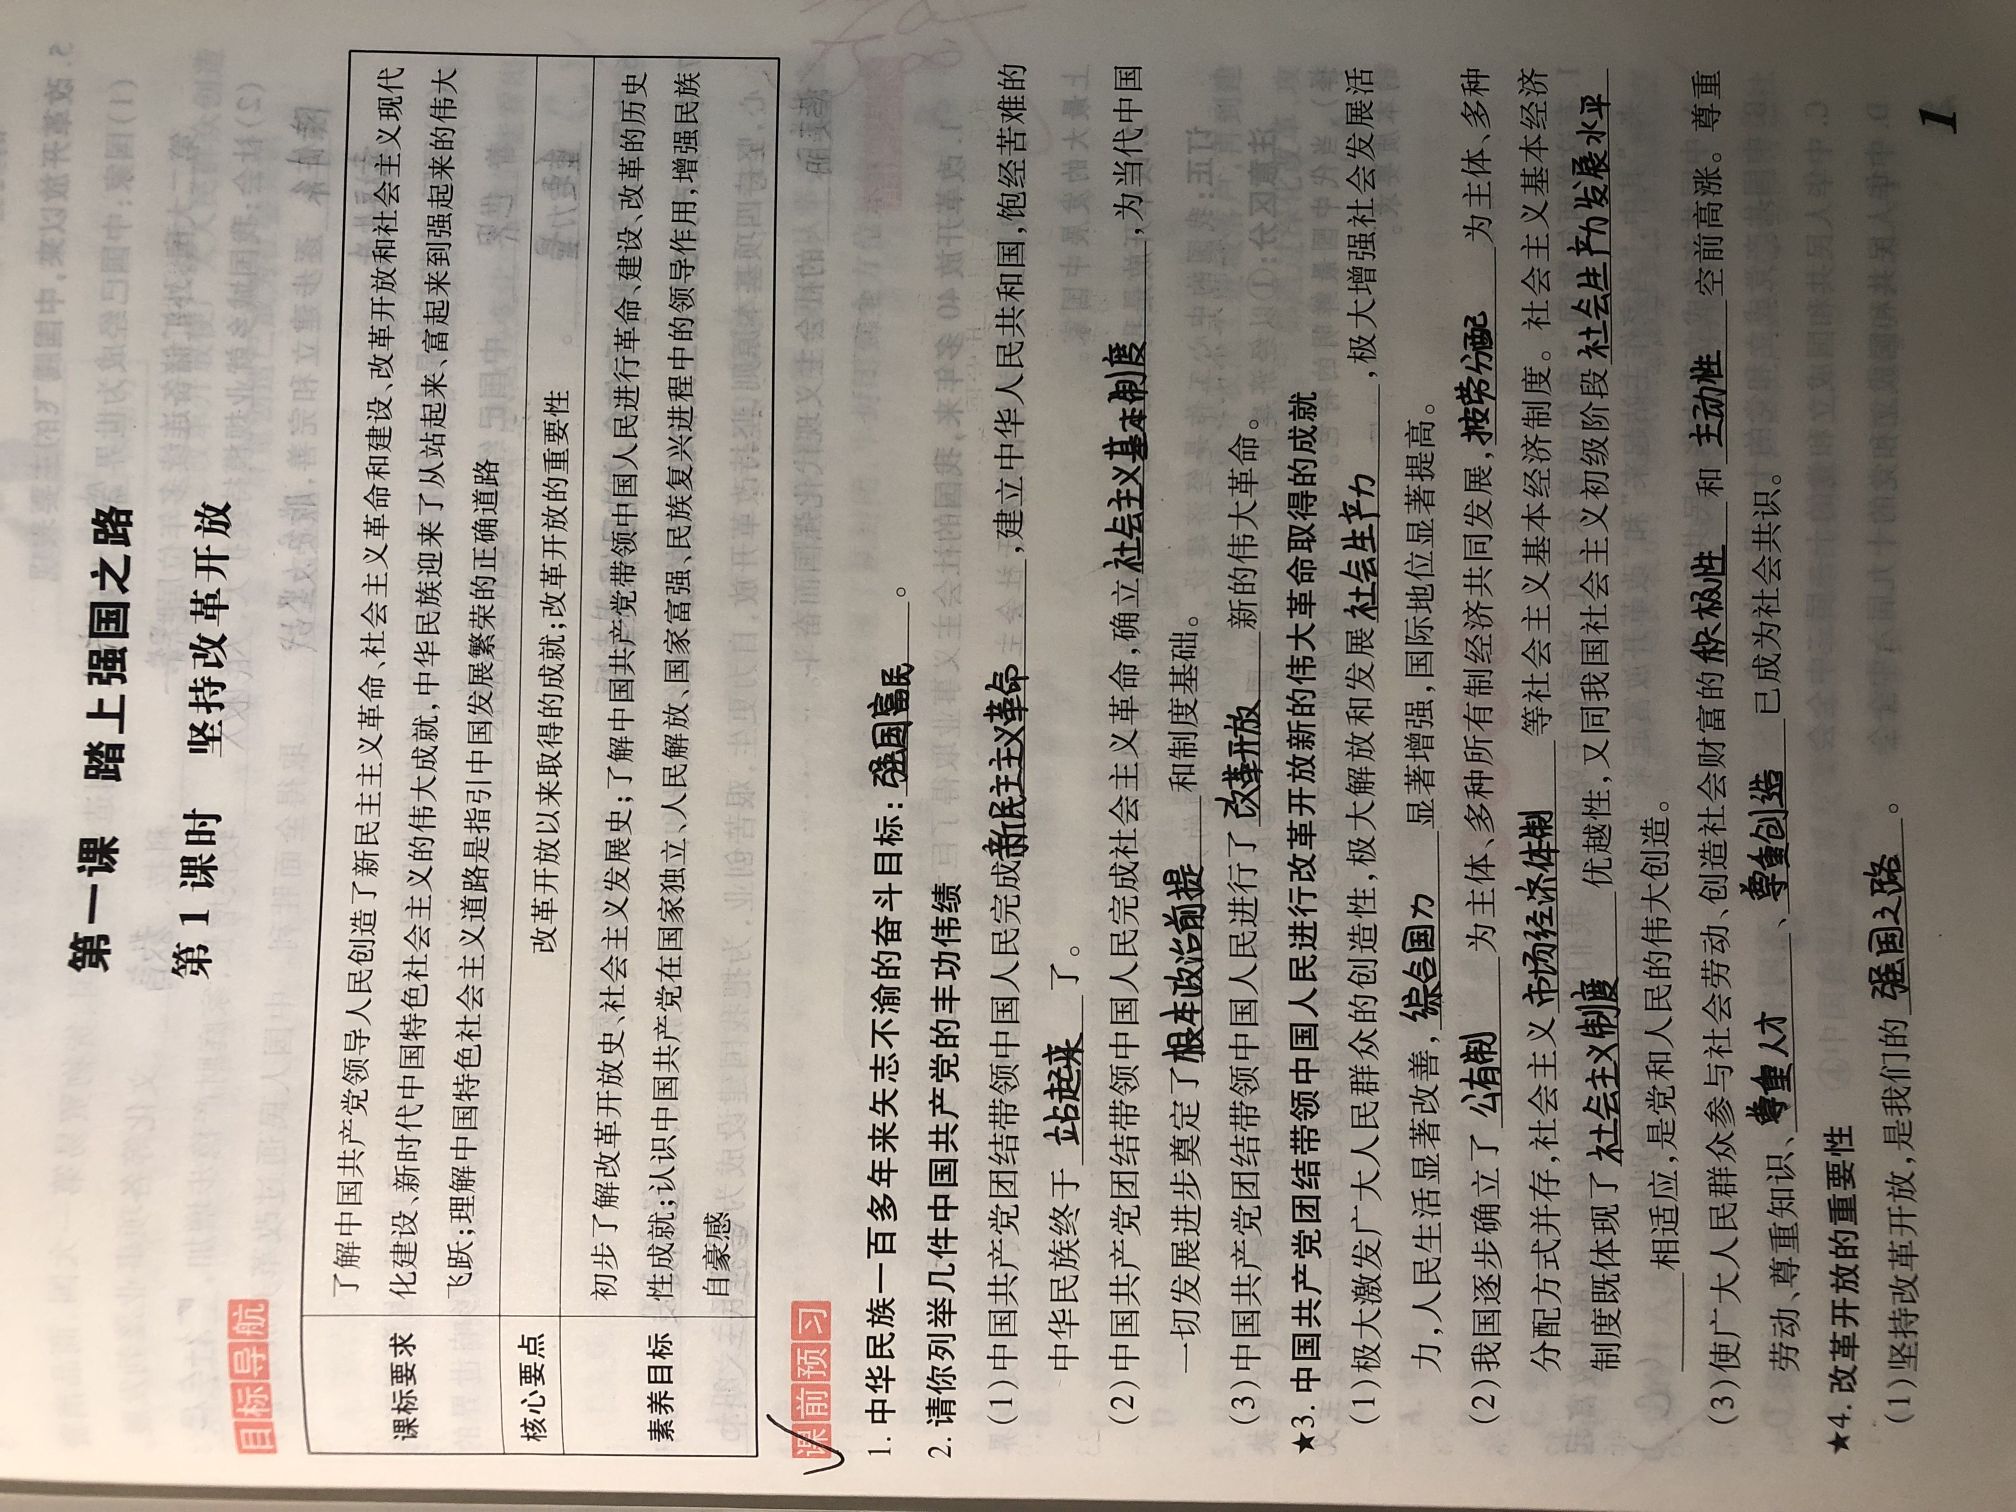 第一课 踏上强国之路
第1课时 坚持改革开放
目标导航
课标要求
了解中国共产党领导人民创造了新民主主义革命、社会主义革命和建设、改革开放和社会主义现代
化建设、新时代中国特色社会主义的伟大成就,中华民族迎来了从站起来、富起来到强起来的伟大
飞跃;理解中国特色社会主义道路是指引中国发展繁荣的正确道路
核心要点
改革开放以来取得的成就;改革开放的重要性
素养目标
初步了解改革开放史、社会主义发展史;了解中国共产党带领中国人民进行革命、建设、改革的历史
性成就;认识中国共产党在国家独立、人民解放、国家富强、民族复兴进程中的领导作用,增强民族
自豪感
课前预习
1. 中华民族一百多年来矢志不渝的奋斗目标:强国富民。
2. 请你列举几件中国共产党的丰功伟绩
(1)中国共产党团结带领中国人民完成新民主主义革命,建立中华人民共和国,饱经苦难的
中华民族终于站起来了。
(2)中国共产党团结带领中国人民完成社会主义革命,确立社会主义基本制度,为当代中国
一切发展进步奠定了根本政治前提和制度基础。
(3)中国共产党团结带领中国人民进行了改革开放新的伟大革命。
★3. 中国共产党团结带领中国人民进行改革开放新的伟大革命取得的成就
(1)极大激发广大人民群众的创造性,极大解放和发展社会生产力,极大增强社会发展活
力,人民生活显著改善,综合国力显著增强,国际地位显著提高。
(2)我国逐步确立了公有制为主体、多种所有制经济共同发展,按劳分配为主体、多种
分配方式并存,社会主义市场经济体制等社会主义基本经济制度。社会主义基本经济
制度既体现了社会主义制度优越性,又同我国社会主义初级阶段社会生产力发展水平
相适应,是党和人民的伟大创造。
(3)使广大人民群众参与社会劳动、创造社会财富的积极性和主动性空前高涨。尊重
劳动、尊重知识、尊重人才、尊重创造已成为社会共识。
★4. 改革开放的重要性
(1)坚持改革开放,是我们的强国之路。
1